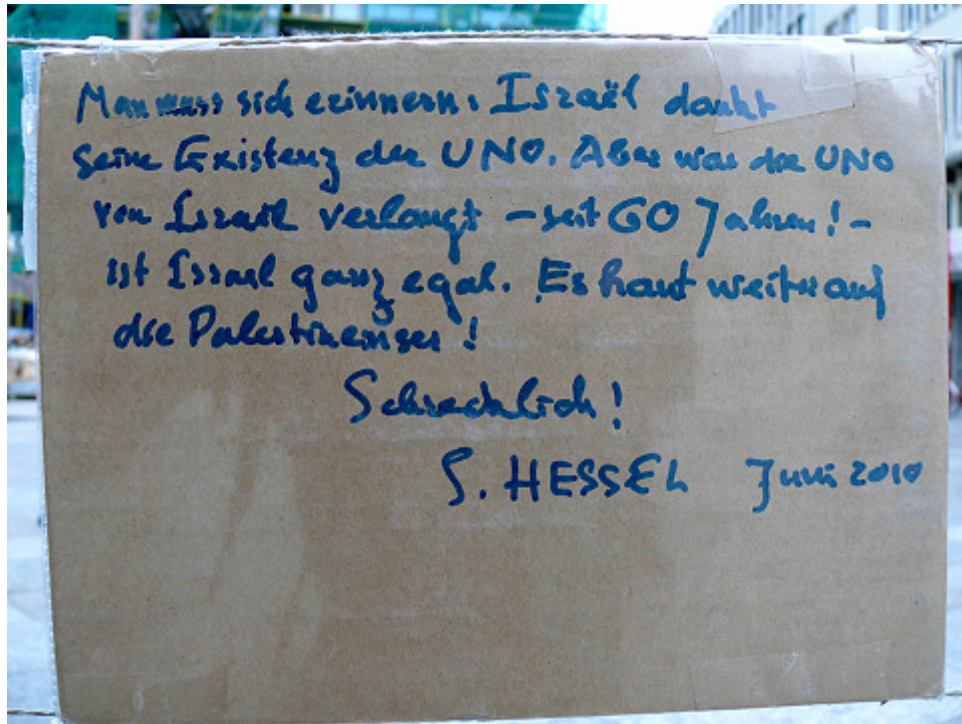 Man muss sich erinnern: Israël dankt
seine Existenz der UNO. Aber was die UNO
von Israël verlangt – seit 60 Jahren! –
ist Israel ganz egal. Es haut weiter auf
die Palestinenser!
Schrecklich!
S. HESSEL Juni 2010